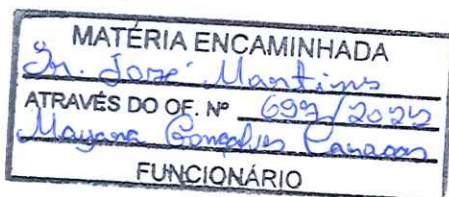 MATÉRIA ENCAMINHADA
Sr. José Martins
ATRAVÉS DO OF. Nº 697/2025
Mayara Gonçalves
FUNCIONÁRIO